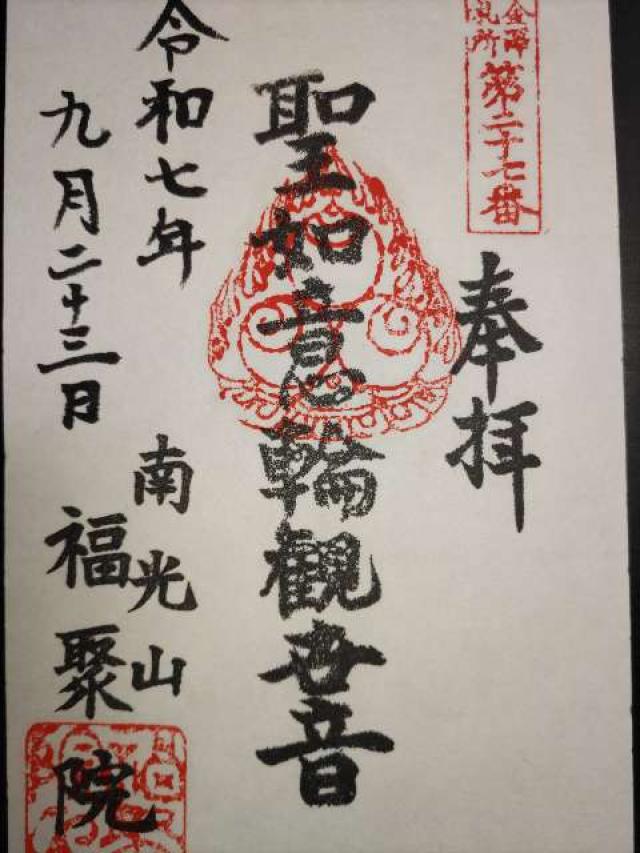 金澤
札所
第二十七番
奉拝
聖如意輪觀世音
令和七年
九月二十三日
南光山
福聚院